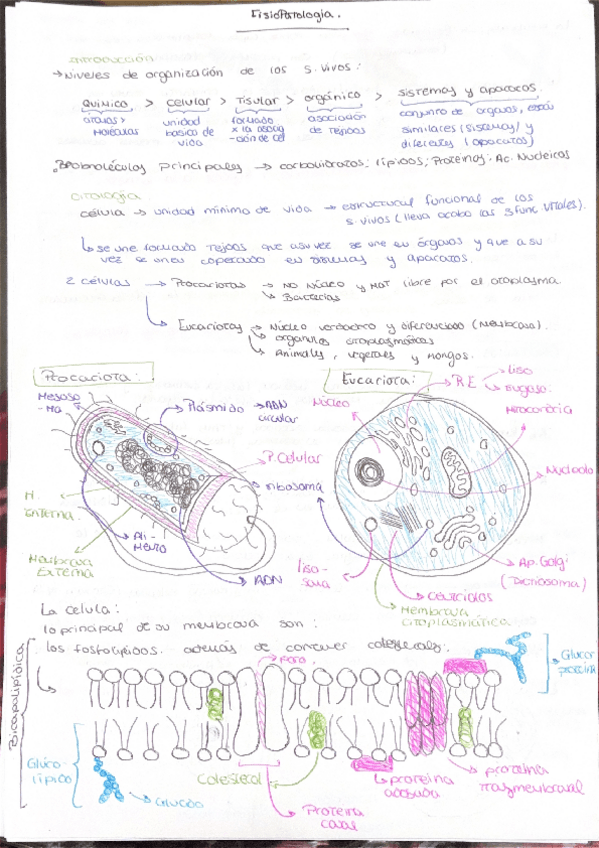 Fisiopatología.
Introducción
→ Niveles de organización de los s. vivos:
Químico > celular > Tisular > orgánico > sistemas y aparatos.
átomos > moléculas
unidad basica de vida
formado x la asoca -ción de cel
asociación de Tejidos
conjunto de organos, esas similares (sistemas) y diferentes (aparatos)
principales → carbohidratos; lípidos; Proteinas; Ac. Nucleicos
Citología
célula → unidad mínima de vida → estructural funcional de los
s. vivos (lleva acabo las 3 func. vitales).
↳ se une formado Tejidos que asu vez se une en órganos y que a su
vez se unen en sistemas y aparatos.
2 células → Procariotas → No Núcleo y MGT libre por el citoplasma
↳ Bacterias
↳ Eucariotas → Núcleo verdadero y diferenciado (Membrana).
↳ organulos citoplasmáticos
↳ Animales, vegetales y hongos.
Procariota:
Mesoso -ma
Plásmido → ADN circular
P. Celular
ribosoma
M. interna
Membrana Externa
ADN
Eucariota:
R E
liso
rugoso
Núcleo
Mitocondria
Nucleolo
Ap. Golgi (Dictiosoma)
liso- soma
Centriolos
Membrana citoplasmática
La celula:
lo principal de su membrana son:
los fosfolípidos. además de contener colesterol.
Bicapalipídica
poro
Gluco proteina
Gluco- lípido
Colesterol
Proteina canal
proteina
proteina trasmembranal